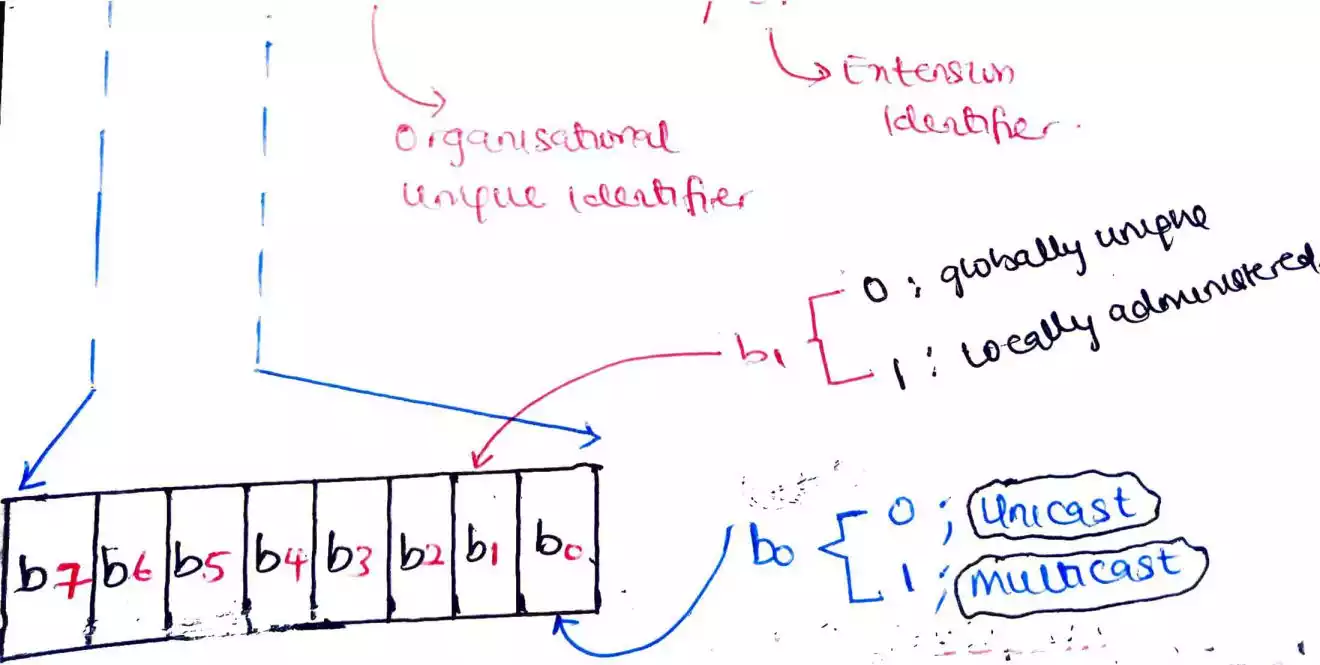 Extension
Identifier.
Organisational
unique identifier
0 ; globally unique
b1
1 : locally administered
b7 b6 b5 b4 b3 b2 b1 b0
0 ; Unicast
b0
1 ; multicast